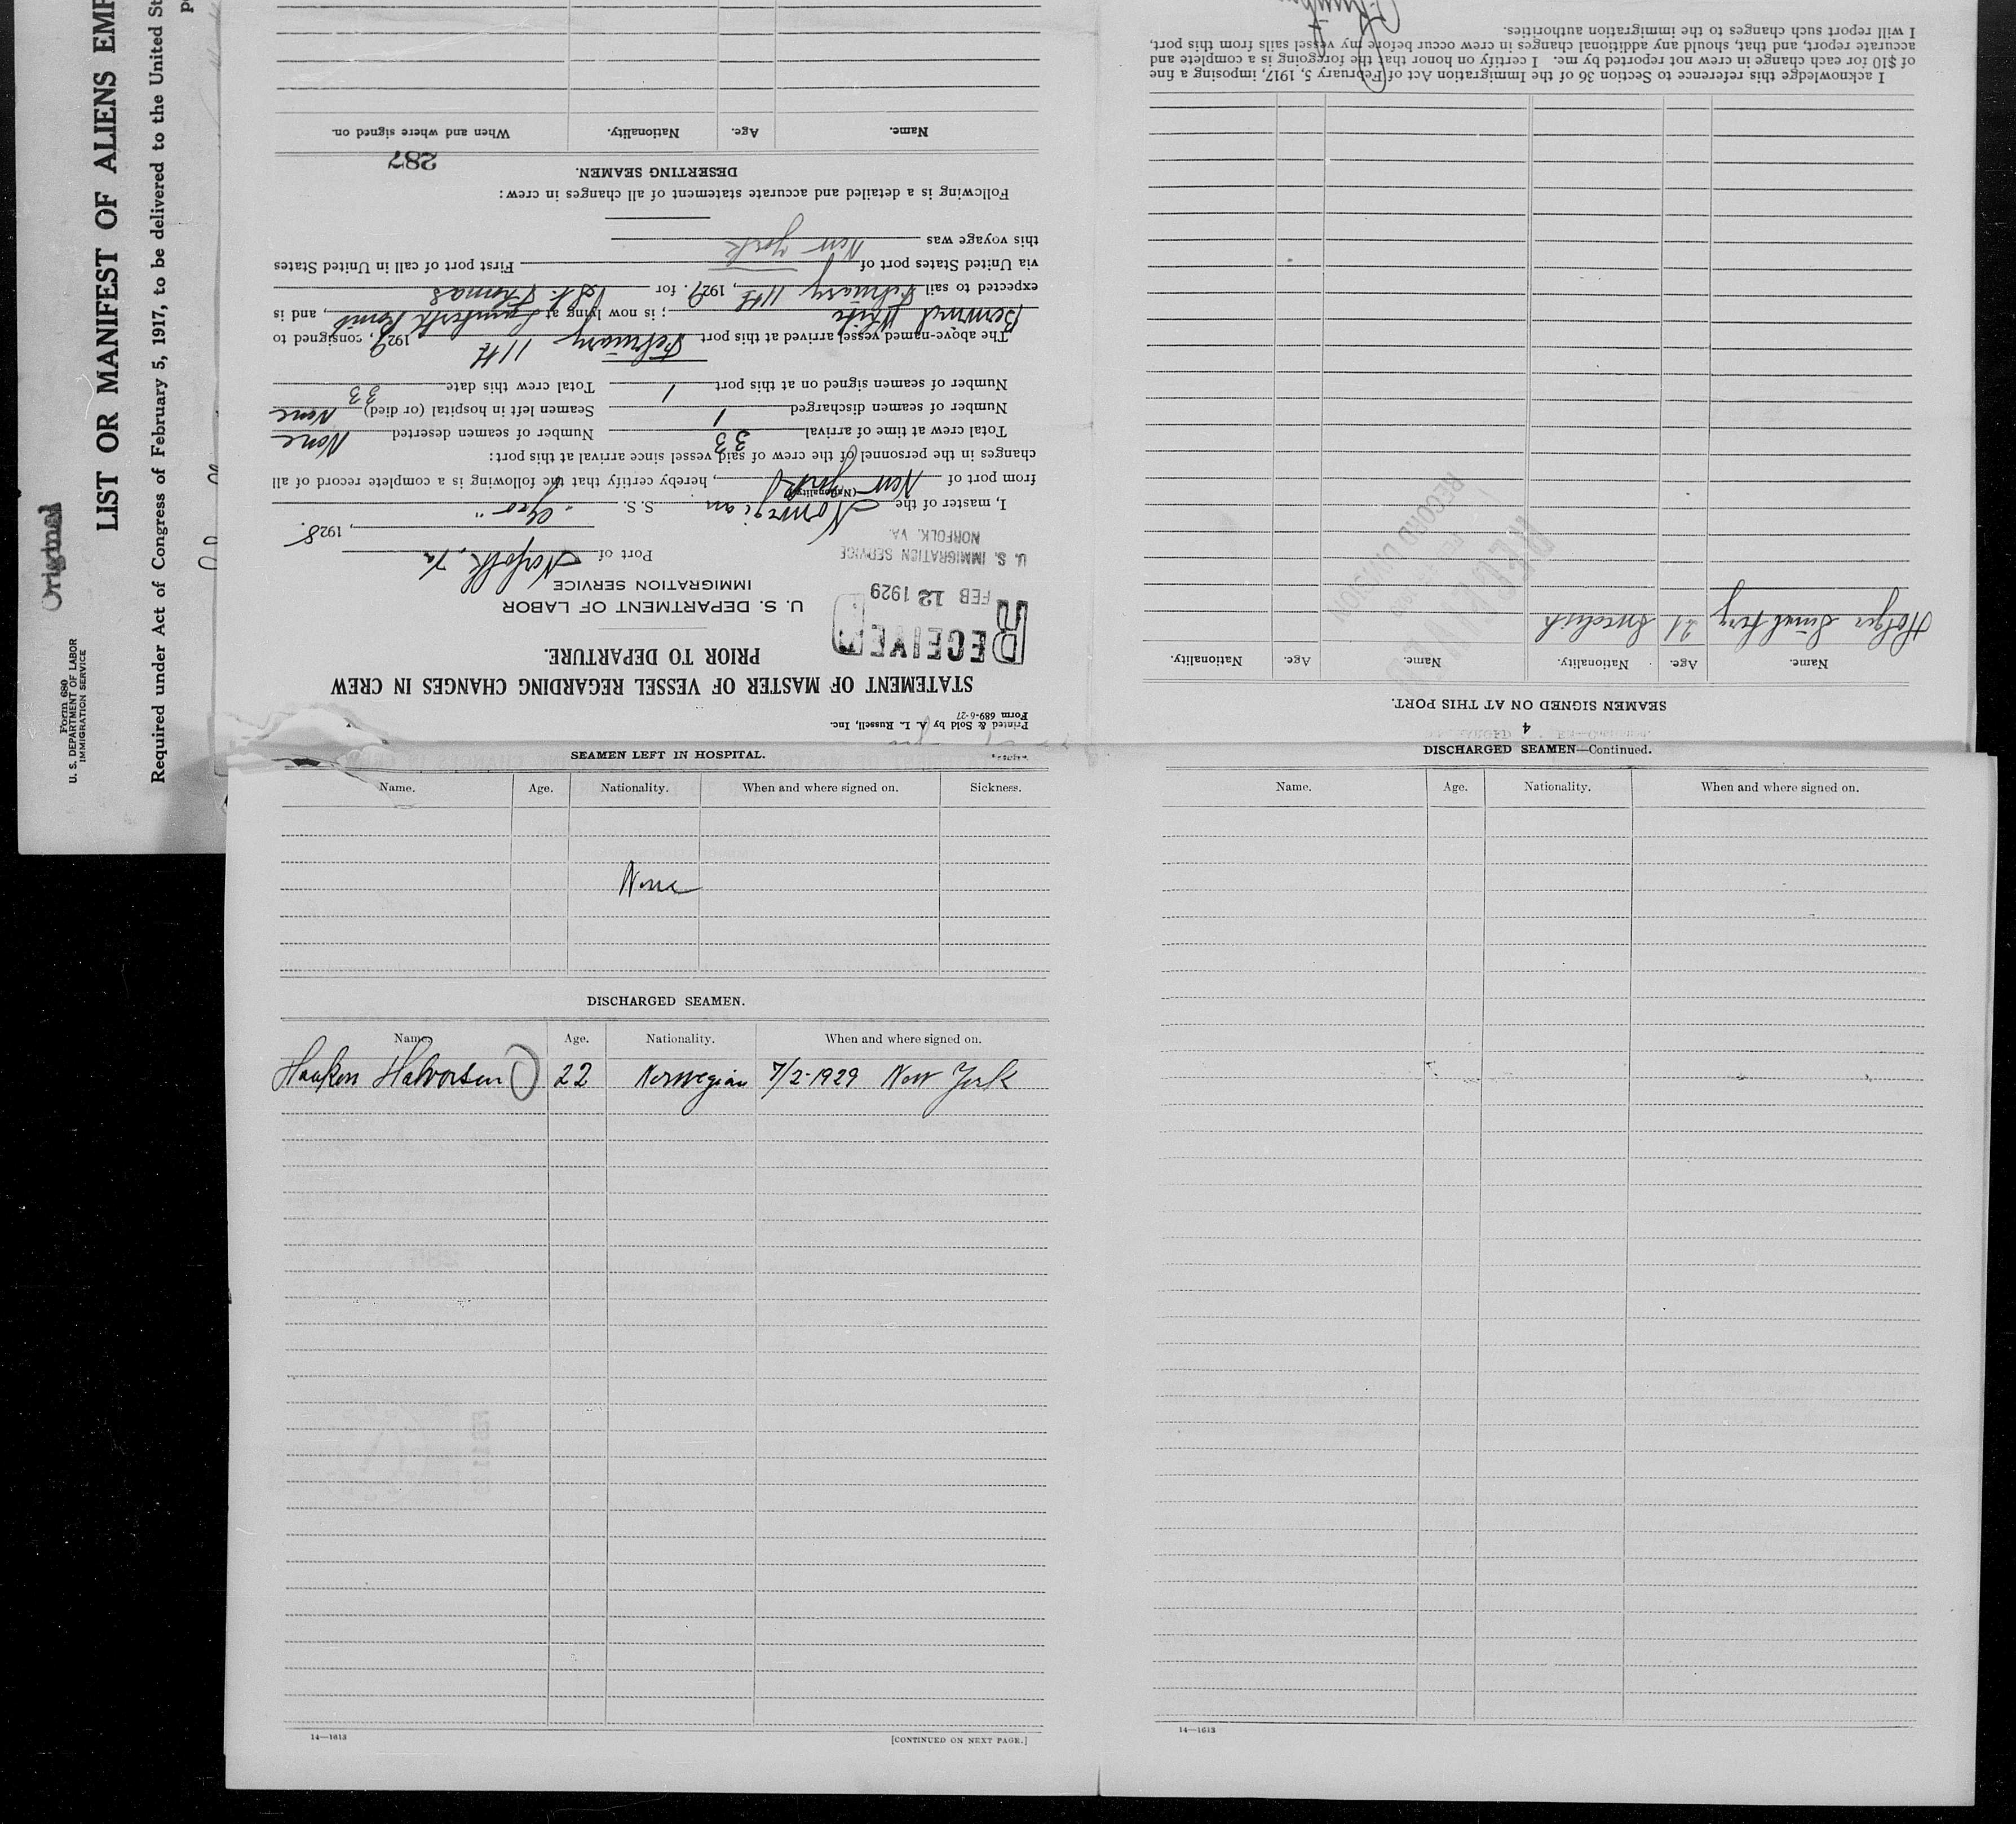 Original
Form 680
U. S. DEPARTMENT OF LABOR
IMMIGRATION SERVICE
LIST OR MANIFEST OF ALIENS EMP
Required under Act of Congress of February 5, 1917, to be delivered to the United St
Printed & Sold by A. L. Russell, Inc.
Form 689-6-27
STATEMENT OF MASTER OF VESSEL REGARDING CHANGES IN CREW
PRIOR TO DEPARTURE.
RECEIVED
FEB 12 1929
U. S. IMMIGRATION SERVICE
NORFOLK, VA.
U. S. DEPARTMENT OF LABOR
IMMIGRATION SERVICE
Port of Norfolk, Va, 1928.
I, master of the Norwegian S. S.
(Nationality)
from port of New York, hereby certify that the following is a complete record of all
changes in the personnel of the crew of said vessel since arrival at this port:
Total crew at time of arrival 33 Number of seamen deserted None
Number of seamen discharged 1 Seamen left in hospital (or died) None
Number of seamen signed on at this port 1 Total crew this date 33
The above-named vessel arrived at this port February 11th 1929, consigned to
; is now lying at Lamberts Point, and is
expected to sail February 11th, 1929. for St. Thomas
via United States port of First port of call in United States
this voyage was New York
Following is a detailed and accurate statement of all changes in crew:
DESERTING SEAMEN.
287
Name. Age. Nationality. When and where signed on.
SEAMEN LEFT IN HOSPITAL.
Name. Age. Nationality. When and where signed on. Sickness.
None
DISCHARGED SEAMEN.
Name. Age. Nationality. When and where signed on.
Haaken Halvorsen 22 Norwegian 7/2-1929 New York
14—1613
[CONTINUED ON NEXT PAGE.]
DISCHARGED SEAMEN—Continued.
Name. Age. Nationality. When and where signed on.
14—1613
4
SEAMEN SIGNED ON AT THIS PORT.
Name. Age. Nationality. Name. Age. Nationality.
Holger 21 Swedish
RECEIVED
RECORD DIVISION
I acknowledge this reference to Section 36 of the Immigration Act of February 5, 1917, imposing a fine
of $10 for each change in crew not reported by me. I certify on honor that the foregoing is a complete and
accurate report, and that, should any additional changes in crew occur before my vessel sails from this port,
I will report such changes to the immigration authorities.